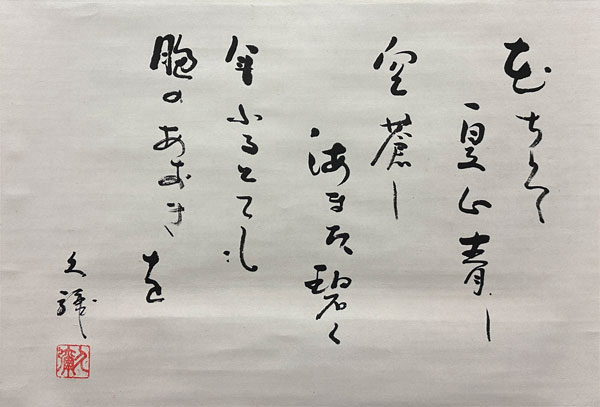 花ちりて
夏山青し
空蒼し
海また碧く
年ふるとても
胸のあおき
を
久彌